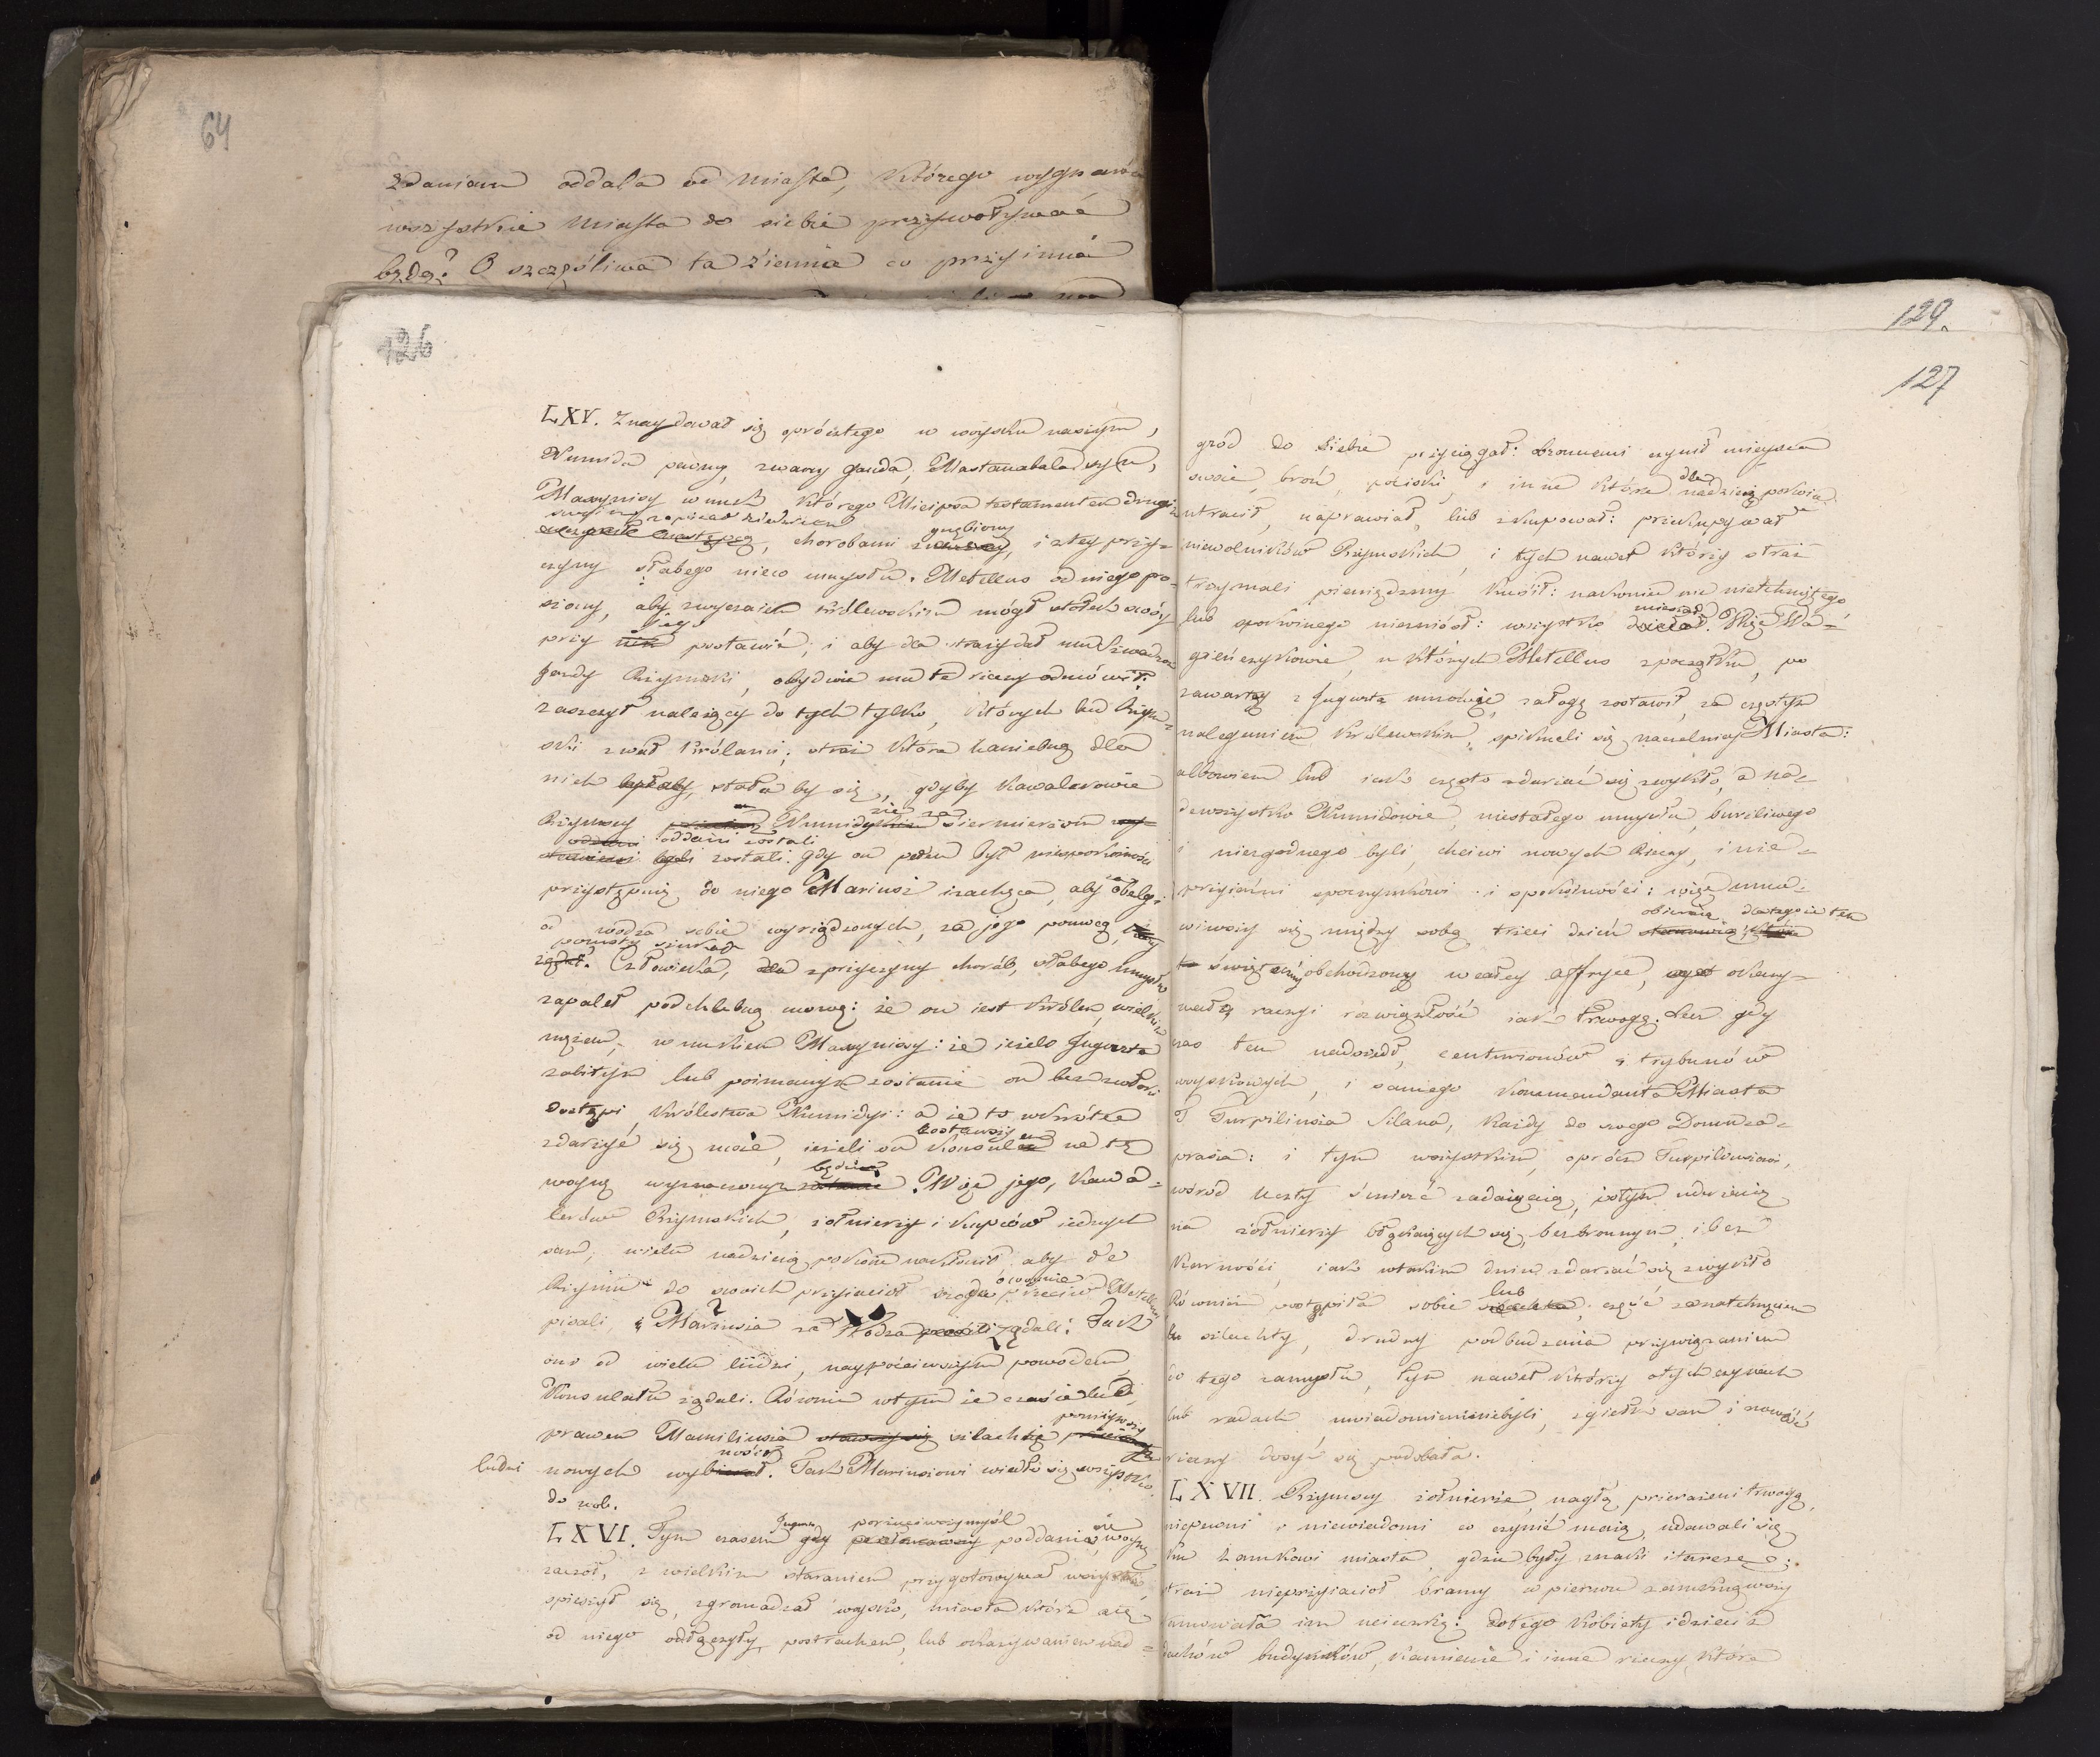 64
zdaniem oddala od miasta, którego wygnańca
wszystkie miasta do siebie przyzwoływać
będą? O szczęśliwa ta ziemia co przyimie
126
LXV. Znaydował się oprócztego w woysku naszym,
Numida pewny, zwany Gauda, Mastanabala syn,
Massynissy wnuk, którego Micipsa testamentem drugim
swoim napisał dziedzicem
gnębiony
chorobami, i ztey przy-
czyny słabego nieco umysłu. Metellus od niego pro-
szony, aby zwyczaiem królewskim mógł stołek swóy
jego
przy nim postawić, i aby dla straży dał mu szwadron
jazdy Rzymski, obydwie mu te rzeczy odmówił:
zaszczyt należący do tych tylko, których lud Rzym-
ski zwał królami; straż która haniebną dla
nich byłaby, stała by się, gdyby Kawalerowie
Rzymscy Numidyskim za siermierzów
oddani zostali
zostali. Gdy on pełen był niespokoiności
przystępuię do niego Mariusz i zachęca, aby za obelgi
od wodza sobie wyrządzonych, za jego pomocą,
pomsty szukał
żądał. Człowieka, dla zprzyczyny chorób, słabego umysłu
zapalał podchlebną mową: że on iest królem, wielkim
mężem, wnukiem Massynissy: że ieżeli Jugurta
zabitym lub poimanym zostanie on bez zwłoki
dostąpi Królestwa Numidyi: a że to wkrótce
zostawszy
zdarzyć się może, ieżeli on Konsulem na tę
będzie
woynę wyznaczonym zostanie. Więc jego, Kawa-
lerów Rzymskich, żołnierzy i kupców iednych
sam, wielu nadzieią pokoiu nakłonił, aby do
Rzymu do swoich przyiaciół srogo przeciw Metellusowi
pisali, i Mariusza za Wodza żądali: Tak
ono od wielu ludzi, naypoćciwszym powodem
Konsulatu żądali. Równie wtym że czasie lud
poniżywszy
prawem Mamiliusza stawszy się szlachtę
nosił
ludzi nowych wybierał. Tak Mariusowi wiodło się wszystko
do woli.
Jugurta porzuciwszy myśl się
LXVI. Tym czasem gdy poddania, woynę
zaczął, z wielkim staraniem przygotowywał wszystko
spieszył się, zgromadzał woysko, miasta które się
od niego odłączyły postrachem, lub okazywaniem nad-
129.
127
gród do siebie przyciągał: obronnemi czynił mieysca
dla
swoie, broń, pociski, i inne które nadzieią pokoiu
utracił, naprawiał, lub skupował: przekupywał
niewolników Rzymskich, i tych nawet którzy straż
trzymali pieniędzmy kusił: nakoniec nic nietchniętego
mieszał
lub spokoinego niezniósł: wszystko działał. Więc Wa-
gieńczykowie, u których Metellus zpoczątku, po
zawartey z Jugurtą umowie, załogę zostawił, za częstym
naleganiem królewskim, spiknęli się naczelnicy Miasta:
albowiem lud iako często zdarzać się zwykło, a na-
dewszystko Numidowie, niestałego umysłu, burzliwego
i niezgodnego byli, chciwi nowych Rzeczy, i nie-
przyiaźni spoczynkowi i spokoiności: więc umó-
obieraią dlatego że ten
wiwszy się między sobą trzeci dzień stanowią
świąteczny obchodzony wcałey Affryce, okazy-
wał raczey rozwiązłość iak trwogę. Lecz gdy
czas ten nadszedł, centurionów i trybunów
woyskowych, i samego Kommendanta Miasta
T Turpiliusza Silana, każdy do swego Domu za-
prasza: i tym wszystkim, oprócz Turpiliuszowi,
wśród uczty śmierć zadaiącią, potym uderzaią
na żołnierzy błąkaiących się, bezbronnym, i bez
karności, iak wtakim dniu zdarzać się zwykło
lub
Równie postąpiła sobie, część znatchnieniem
szlachty, drudzy podbudzania przywiązaniem
do tego zamysłu, tym nawet którzy otych czynach
lub radach uwiadomieni niebyli, zgiełk sam i nowość
rzeczy dosyć się podobała.
LXVII. Rzymscy żołnierze, nagłą przerażeni trwogą,
niepewni i niewiadomi co czynić maią, udawali się
ku zamkowi miasta, gdzie były znaki i tarcze;
straż nieprzyiaciół bramy wpierwu zamknąwszy
tamowała im ucieczkę: dotego kobiety i dzieci z
dachów budynków, kamienie i inne rzeczy, które